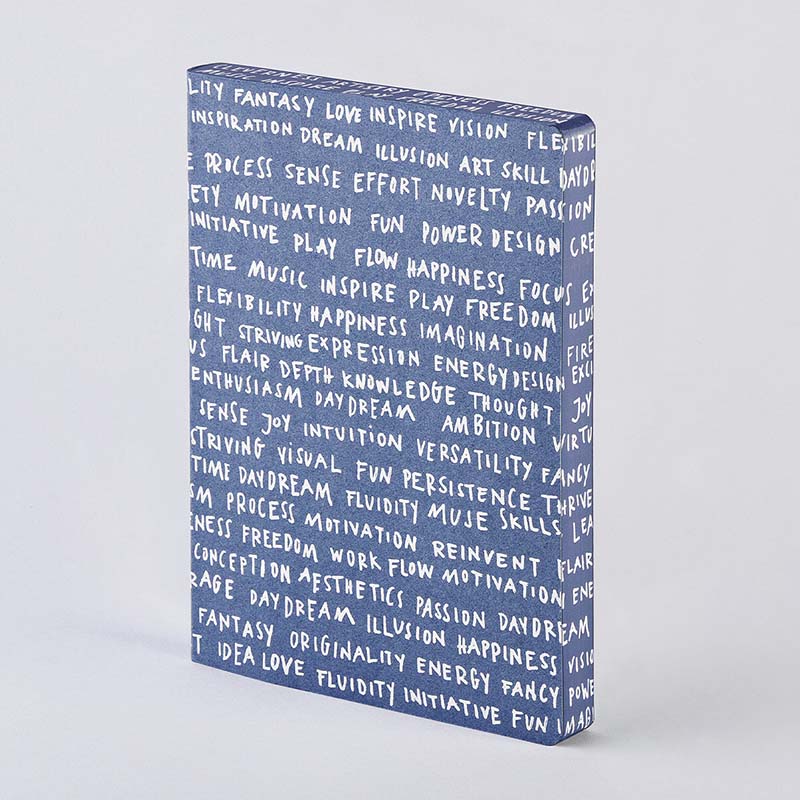 CLEVERNESS ARTISTRY FREEDOM
MUSIC INSPIRE PLAY FREEDOM ILLUSION
LITY FANTASY LOVE INSPIRE VISION FLEXIBIL
INSPIRATION DREAM ILLUSION ART SKILL DAYDR
E PROCESS SENSE EFFORT NOVELTY PASSION
ETY MOTIVATION FUN POWER DESIGN CRE
INITIATIVE PLAY FLOW HAPPINESS FOCUS EX
TIME MUSIC INSPIRE PLAY FREEDOM ILLUS
FLEXIBILITY HAPPINESS IMAGINATION FIRE
GHT STRIVING EXPRESSION ENERGY DESIGN EXCI
US FLAIR DEPTH KNOWLEDGE THOUGHT JOY
ENTHUSIASM DAYDREAM AMBITION VIRTU
SENSE JOY INTUITION VERSATILITY FANCY
STRIVING VISUAL FUN PERSISTENCE THRIVE
TIME DAYDREAM FLUIDITY MUSE SKILLS LEA
SM PROCESS MOTIVATION REINVENT FLAIR
ENESS FREEDOM WORK FLOW MOTIVATION ENE
CONCEPTION AESTHETICS PASSION DAYDREAM
RAGE DAYDREAM ILLUSION HAPPINESS VISIO
FANTASY ORIGINALITY ENERGY FANCY POWE
T IDEA LOVE FLUIDITY INITIATIVE FUN IMAG